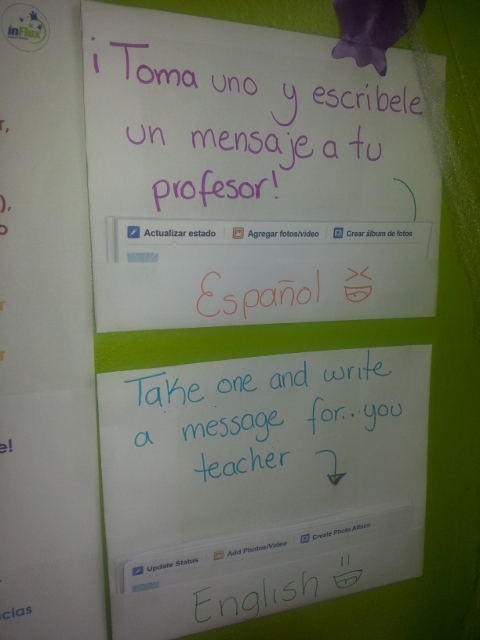 inFlux
¡Toma uno y escríbele
un mensaje a tu
profesor!
Actualizar estado Agregar fotos/video Crear álbum de fotos
Español
Take one and write
a message for..you
teacher
Update Status Add Photos/Video Create Photo Album
English
r,
),
o
r
r
e!
cias